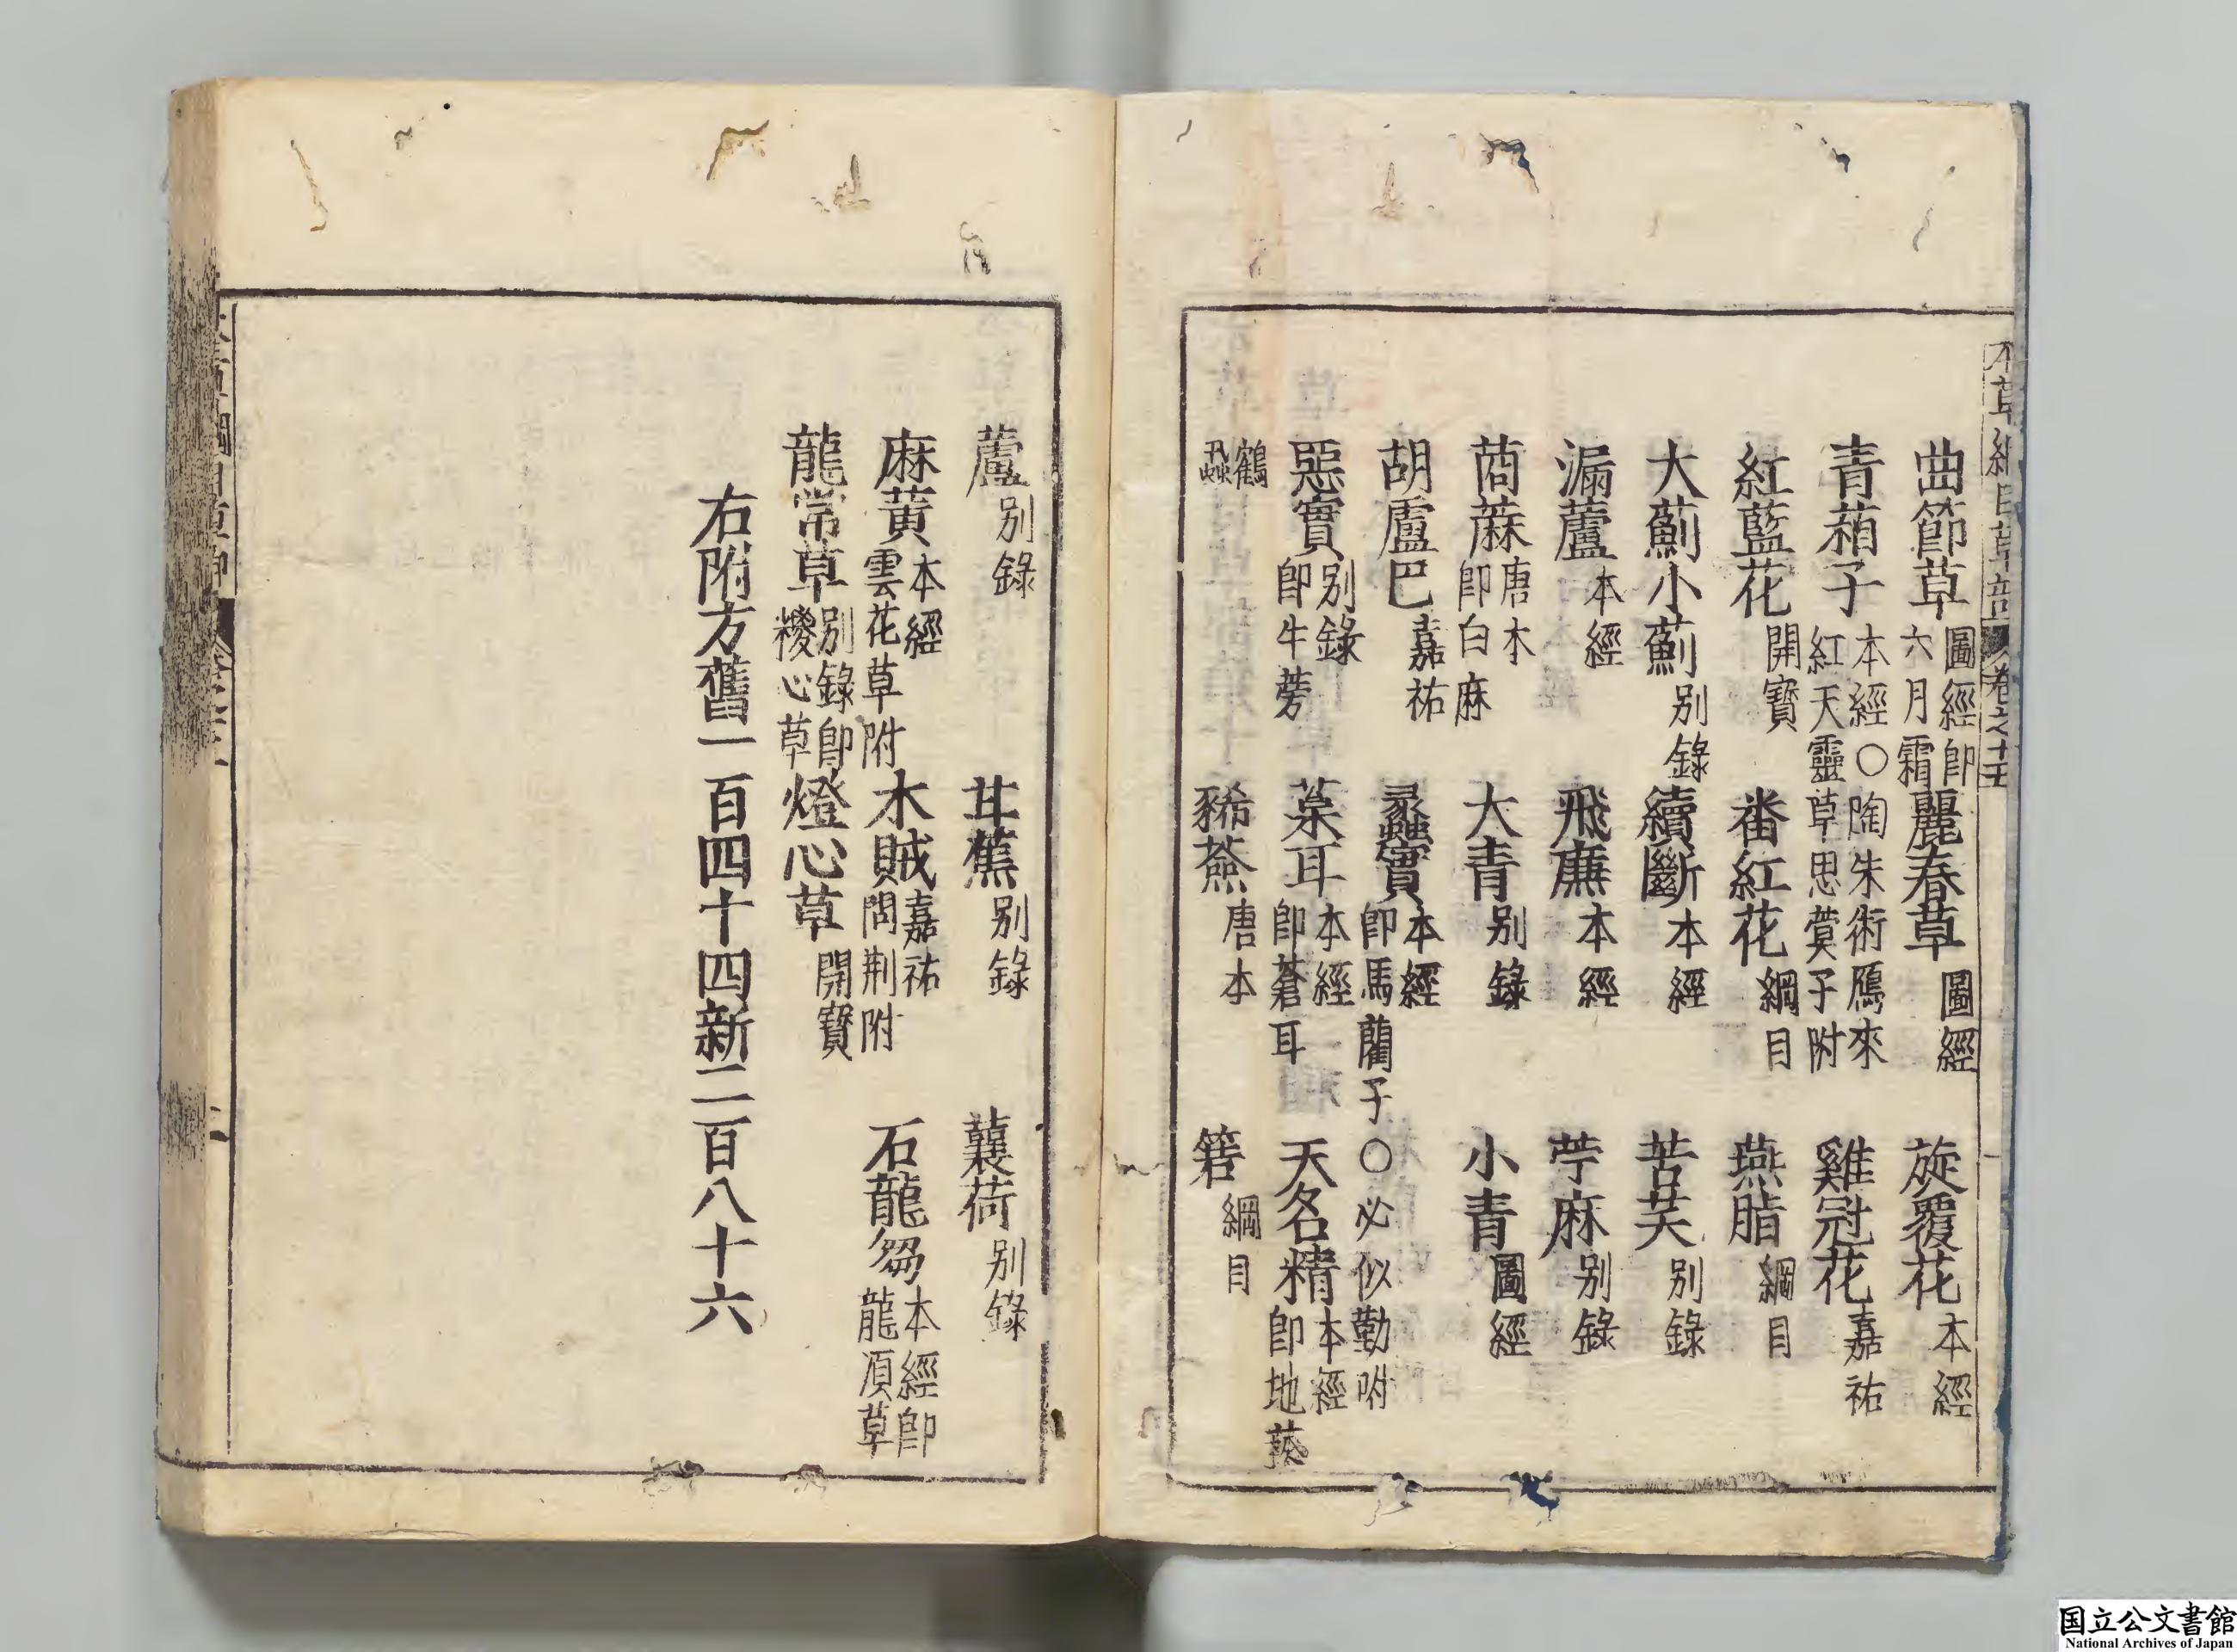 本草綱目草部 卷之十五
曲節草 圖經即六月霜 麗春草 圖經 旋覆花 本經
青葙子 本經○陶朱術鴈來紅天靈草思蓂子附 雞冠花 嘉祐
紅藍花 開寶 番紅花 綱目 燕脂 綱目
大薊小薊 別錄 續斷 本經 苦芺 別錄
漏蘆 本經 飛廉 本經 苧麻 別錄
莔麻 唐本即白麻 大青 別錄 小青 圖經
胡盧巴 嘉祐 蠡實 本經即馬藺子○必似勒附
惡實 別錄即牛蒡 葈耳 本經即蒼耳 天名精 本經即地菘
鶴蝨 豨薟 唐本 箬 綱目
蘆 別錄 甘蕉 別錄 蘘荷 別錄
麻黃 本經雲花草附 木賊 嘉祐問荆附 石龍芻 本經即龍須草
龍常草 別錄即糉心草 燈心草 開寶
右附方舊一百四十四新二百八十六
国立公文書館
National Archives of Japan